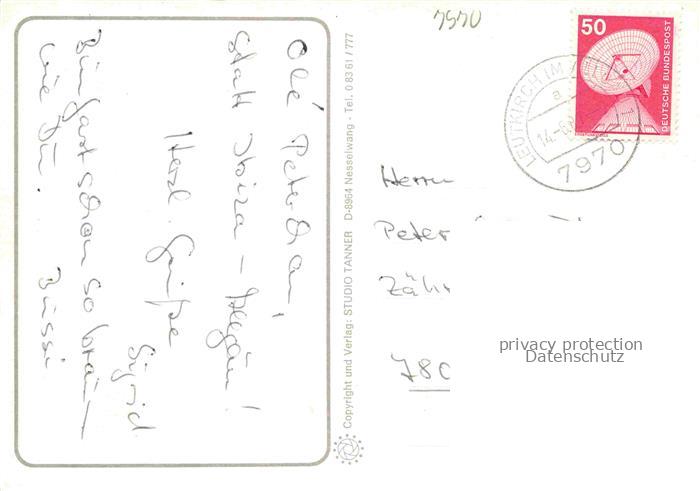 Olé Peterchen!
statt Ibiza – Allgäu!
Herzl. Grüße
Sigrid
Bin fast schon so braun
wie Du. Bussi
Copyright und Verlag: STUDIO TANNER D-8964 Nesselwang - Tel. 0 83 61 / 777
7970
50
DEUTSCHE BUNDESPOST
LEUTKIRCH IM
a
14.-6
7970
Herrn
Peter
Zäh
780
privacy protection
Datenschutz